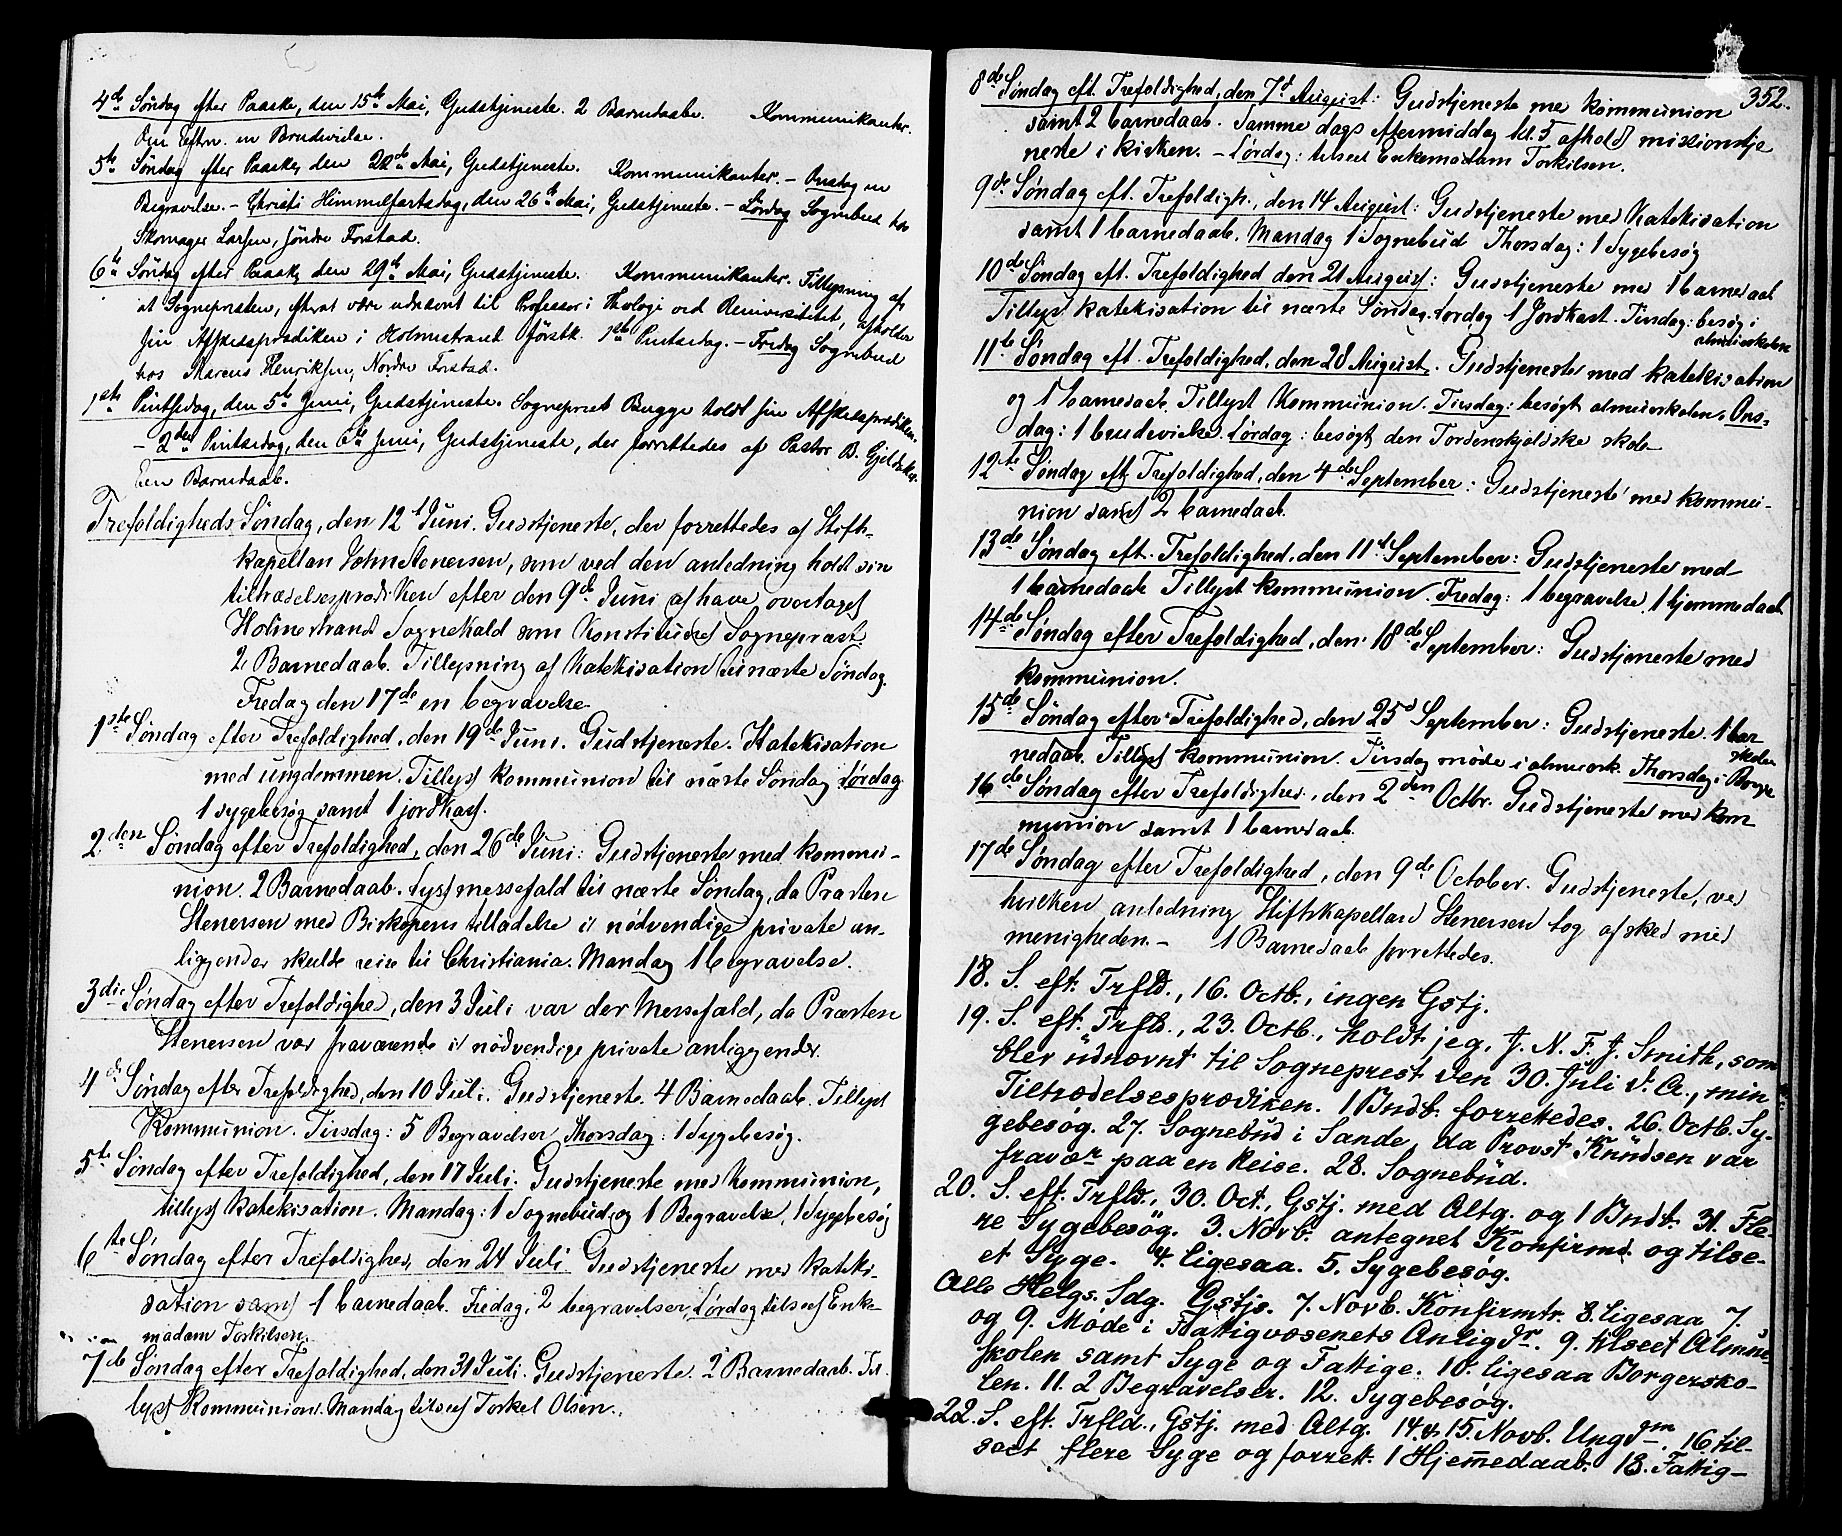 4de Söndag efter Paaske, den 15de Mai, Gudstjeneste. 2 Barndaabe. Kommunikanter.
Om Eftm. en Brudevielse.
5te Söndag efter Paaske, den 22de Mai, Gudstjeneste. Kommunikanter. – Onsdag en
Begravelse. – Christi Himmelfartsdag, den 26de Mai, Gudstjeneste. – Lördag Sognebud hos
Skomager Larsen, söndre Forstad.
6te Söndag efter Paaske, den 29de Mai, Gudstjeneste. Kommunikanter. Tillysning af
at Sognepresten, efterat være udnævnt til Professor i Theologi ved Universitetet, afholder
sin Afskedsprædiken i Holmestrand förstk. 1ste Pintsedag. – Fredag Sognebud
hos Marcus Henriksen, Nordre Forstad.
1ste Pintsedag, den 5te Juni, Gudstjeneste. Sogneprest Bugge holdt sin Afskedsprædiken.
– 2den Pintsedag, den 6te Juni, Gudstjeneste, der forrettedes af Pastor B. Gjeldsker.
Een Barnedaab.
Trefoldigheds Söndag, den 12t Juni. Gudstjeneste, der forrettedes af Stifts-
kapellan John Stenersen, som ved den anledning holdt sin
tiltrædelsesprædiken efter den 9de Juni at have overtaget
Holmestrand Sognekald som Konstitueret Sognepræst
2 Barnedaab. Tillysning af Katekisation til næste Söndag.
Fredag den 17de en begravelse
1ste Söndag efter Trefoldighed, den 19de Juni. Gudstjeneste. Katekisation
med ungdommen. Tillyst kommunion til næste Söndag Lördag
1 sygebesög samt 1 jordkast.
2den Söndag efter Trefoldighed, den 26de Juni: Gudstjeneste med kommu-
nion. 2 Barnedaab. Lyst messefald til næste Söndag, da Præsten
Stenersen med Biskopens tilladelse i nödvendige private an-
liggender skulde reise til Christiania. Mandag 1 begravelse.
3die Söndag efter Trefoldighed, den 3 Juli var der Messefald, da Præsten
Stenersen var fraværende i nödvendige private anliggender.
4de Söndag efter Trefoldighed, den 10 Juli. Gudstjeneste. 4 Barnedaab. Tillyst
Kommunion. Tirsdag: 5 Begravelser Thorsdag: 1 Sygebesög.
5te Söndag efter Trefoldighed, den 17 Juli. Gudstjeneste med Kommunion,
tillyst katekisation. Mandag: 1 Sognebud og 1 Begravelse, 1 Sygebesög
6te Söndag efter Trefoldighed, den 24 Juli Gudstjeneste med Kateki-
sation samt 1 barnedaab. Fredag, 2 begravelser, Lördag tilseet Enke-
madam Torkilsen.
7de Söndag efter Trefoldighed, den 31 Juli. Gudstjeneste. 2 Barnedaab. Til-
lyst Kommunion. Mandag tilseet Torkel Olsen.
352.
8de Söndag eft. Trefoldighed, den 7d August: Gudstjeneste med kommunion
samt 2 barnedaab. Samme dags eftermiddag kl. 5 afholdt missionstje
neste i kirken. – Lördag: tilseet Enkemadam Torkilsen.
9de Söndag eft. Trefoldigh., den 14 August: Gudstjeneste med Katekisation
samt 1 barnedaab. Mandag 1 Sognebud Thorsdag: 1 Sygebesög
10de Söndag eft. Trefoldighed den 21 August: Gudstjeneste med 1 barnedaab
Tillyst katekisation til næste Söndag. Lördag 1 Jordkast. Tirsdag: besög i
almueskolen
11te Söndag eft. Trefoldighed, den 28 August. Gudstjeneste med katekisation
og 1 barnedaab. Tillyst Kommunion. Tirsdag: besögt almueskolen. Ons-
dag: 1 brudevielse. Lördag: besögt den Tordenskjoldske skole
12te Söndag eft. Trefoldighed, den 4de September: Gudstjeneste med kommu-
nion samt 2 barnedaab.
13de Söndag eft. Trefoldighed, den 11t September: Gudstjeneste med
1 barnedaab Tillyst kommunion. Fredag: 1 begravelse. 1 hjemmedaab
14de Söndag efter Trefoldighed, den 18de September: Gudstjeneste med
kommunion.
15de Söndag efter Trefoldighed, den 25d September: Gudstjeneste. 1 bar
nedaab. Tillyst kommunion. Tirsdag möde i almuesk. Thorsdag i Borger
skolen
16de Söndag efter Trefoldighed, den 2den Octbr. Gudstjeneste med kom
munion samt 1 barnedaab.
17de Söndag efter Trefoldighed, den 9de October. Gudstjeneste, ved
hvilken anledning Stiftskapellan Stenersen tog afsked med
menigheden. – 1 Barnedaab forrettedes.
18. S. eft. Trfld., 16. Octb., ingen Gstj.
19. S. eft. Trfld., 23. Octb., holdt jeg, J. N. F. J. Smith, som
blev udnævnt til Sogneprest den 30. Juli d. A., min
Tiltrædelsesprædiken. 1 Bndb. forrettedes. 26. Octb. Sy-
gebesög. 27. Sognebud i Sande, da Provst Knudsen var
fravær paa en Reise. 28. Sognebud.
20. S. eft. Trfld., 30. Oct., Gstj. med Altg. og 1 Bndb. 31. Fle-
re Sygebesög. 3. Novb. antegnet Konfirmd. og tilse-
et Syge. 4. ligesaa. 5. Sygebesög.
Alle Helgs. Sdg. Gstjs. 7. Novb. Konfirmtr. 8. ligesaa 7.
og 9. Möde i Fattigvæsenets Anligdr. 9. tilseet Almue-
skolen samt Syge og Fattige. 10. ligesaa Borgersko-
len. 11. 2 Begravelser. 12. Sygebesög.
22. S. eft. Trfld., Gstj. med Altg. 14. & 15. Novb. Ungdm. 16 til-
seet flere Syge og forrett. 1 Hjemmedaab. 18. Fattig-